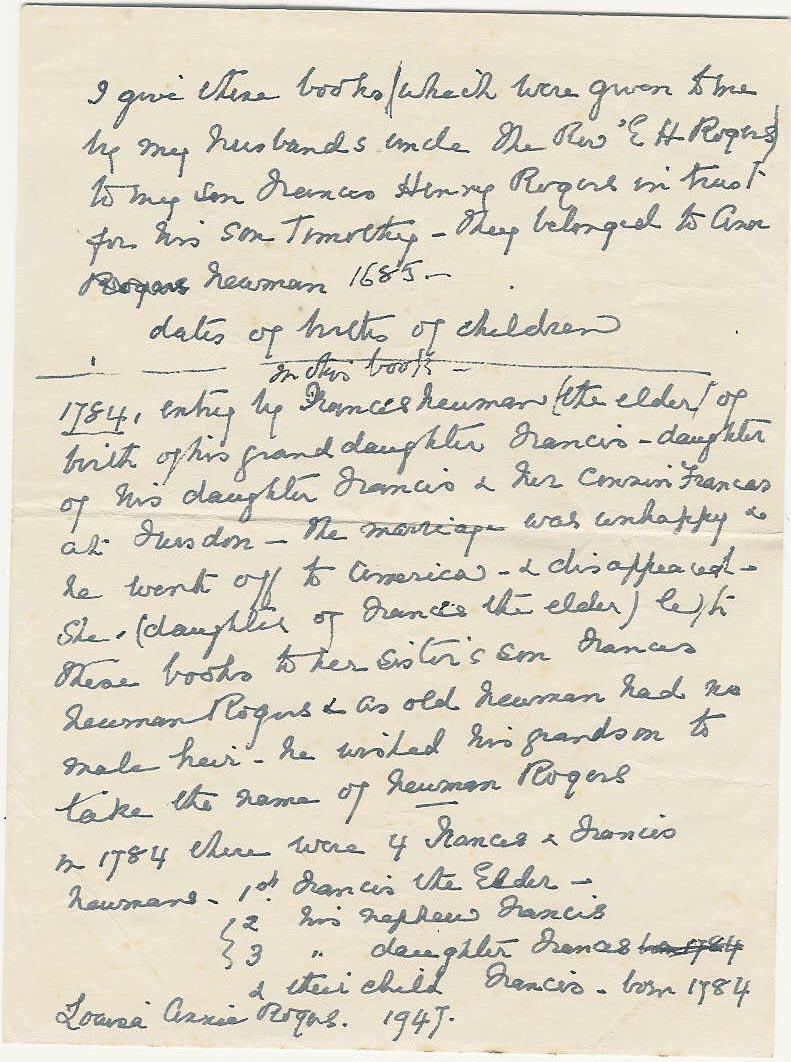 I give these books (which were given to me
by my husbands uncle the Rev' E H Rogers)
to my son Frances Henry Rogers in trust
for his son Timothy - They belonged to Ann
Rogers Newman 1685 -
dates of births of children
in this book -
1784, entry by Frances Newman (the elder) of
birth of his grand daughter Francis - daughter
of his daughter Francis & her cousin Frances
at - The marriage was unhappy &
he went off to America - & disappeared -
She. (daughter of Francis the elder) left
these books to her sister's son Frances
Newman Rogers & as old Newman had no
male heir - he wished his grandson to
take the name of Newman Rogers
In 1784 there were 4 Frances & Francis
Newmans - 1st. Francis the Elder -
{ 2 his nephew Francis
{ 3 " daughter Frances born 1784
& their child Francis - born 1784
Louisa Annie Rogers. 1947.